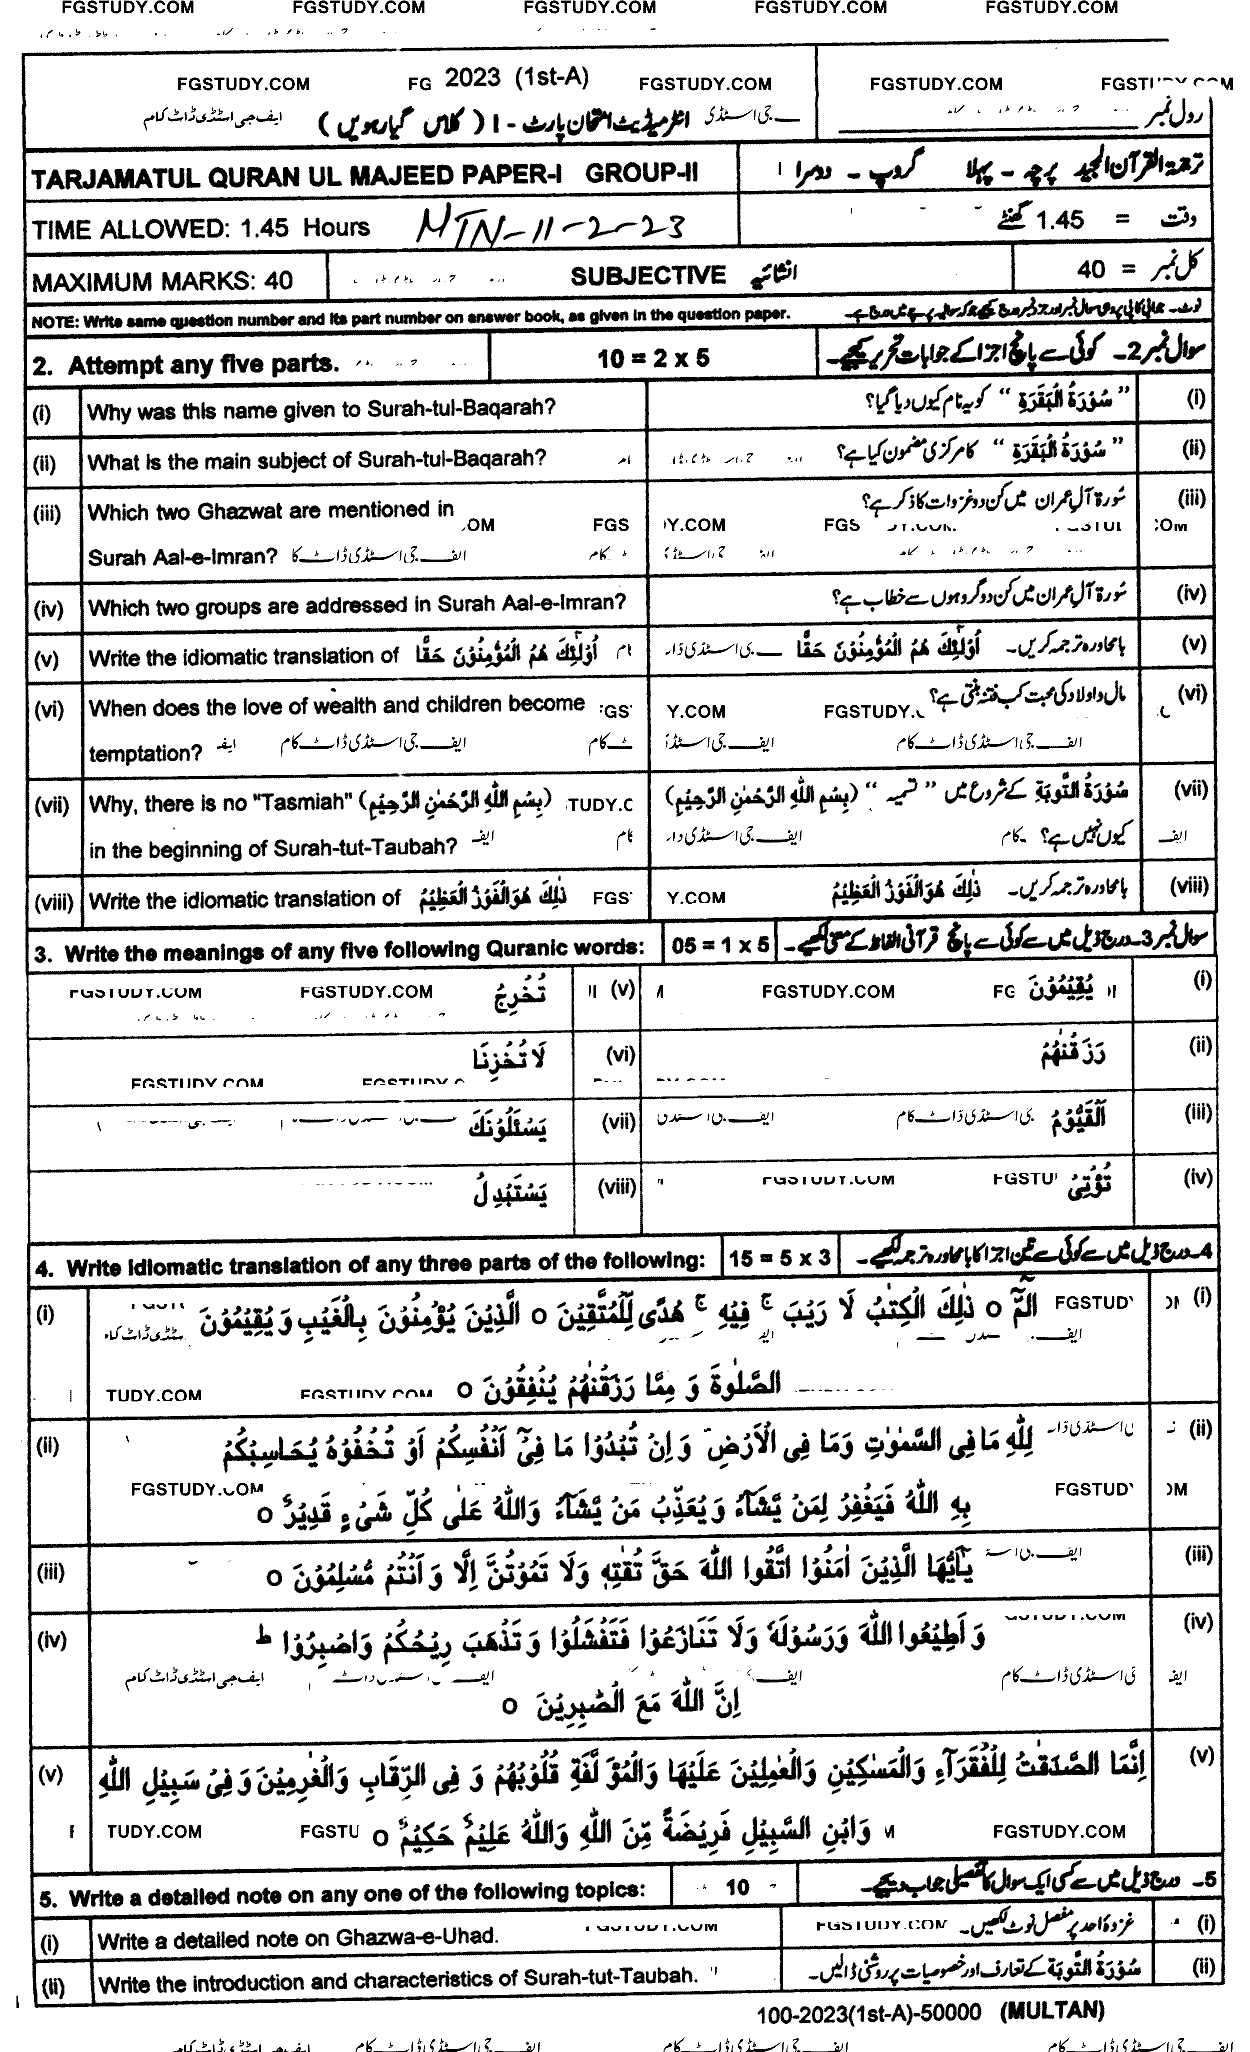 FGSTUDY.COM FGSTUDY.COM FGSTUDY.COM FGSTUDY.COM FGSTUDY.COM
FGSTUDY.COM FG 2023 (1st-A) FGSTUDY.COM FGSTUDY.COM
رول نمبر
انٹرمیڈیٹ امتحان پارٹ - I (کلاس گیارہویں) ایف جی اسٹڈی ڈاٹ کام
TARJAMATUL QURAN UL MAJEED PAPER-I GROUP-II
ترجمۃ القرآن المجید پرچہ - پہلا گروپ - دوسرا
TIME ALLOWED: 1.45 Hours MTN-11-2-23
وقت = 1.45 گھنٹے
MAXIMUM MARKS: 40 SUBJECTIVE انشائیہ
کل نمبر = 40
NOTE: Write same question number and its part number on answer book, as given in the question paper.
2. Attempt any five parts. 10 = 2 x 5 سوال نمبر 2۔ کوئی سے پانچ اجزا کے جوابات تحریر کیجیے۔
(i) Why was this name given to Surah-tul-Baqarah? "سُوْرَۃُ الْبَقَرَۃِ" کو یہ نام کیوں دیا گیا؟ (i)
(ii) What is the main subject of Surah-tul-Baqarah? "سُوْرَۃُ الْبَقَرَۃِ" کا مرکزی مضمون کیا ہے؟ (ii)
(iii) Which two Ghazwat are mentioned in سُورۃ آلِ عمران میں کن دو غزوات کا ذکر ہے؟ (iii)
Surah Aal-e-Imran?
(iv) Which two groups are addressed in Surah Aal-e-Imran? سُورۃ آلِ عمران میں کن دو گروہوں سے خطاب ہے؟ (iv)
(v) Write the idiomatic translation of اُولٰٓئِكَ هُمُ الْمُؤْمِنُوْنَ حَقًّا بامحاورہ ترجمہ کریں۔ اُولٰٓئِكَ هُمُ الْمُؤْمِنُوْنَ حَقًّا (v)
(vi) When does the love of wealth and children become مال و اولاد کی محبت کب فتنہ بنتی ہے؟ (vi)
temptation? ایف جی اسٹڈی ڈاٹ کام
(vii) Why, there is no "Tasmiah" (بِسْمِ اللّٰهِ الرَّحْمٰنِ الرَّحِيْمِ) سُوْرَۃُ التَّوْبَۃِ کے شروع میں "تسمیہ" (بِسْمِ اللّٰهِ الرَّحْمٰنِ الرَّحِيْمِ) (vii)
in the beginning of Surah-tut-Taubah? کیوں نہیں ہے؟
(viii) Write the idiomatic translation of ذٰلِكَ هُوَ الْفَوْزُ الْعَظِيْمُ بامحاورہ ترجمہ کریں۔ ذٰلِكَ هُوَ الْفَوْزُ الْعَظِيْمُ (viii)
3. Write the meanings of any five following Quranic words: 05 = 1 x 5 سوال نمبر 3۔ درج ذیل میں سے کوئی سے پانچ قرآنی الفاظ کے معنی لکھیے۔
(i) يُقِيْمُوْنَ (v) تُخْرِجُ
FGSTUDY.COM FGSTUDY.COM FGSTUDY.COM
(ii) رَزَقْنٰهُمْ (vi) لَا تُخْزِنَا
(iii) اَلْقَيُّوْمُ (vii) يَسْئَلُوْنَكَ
(iv) تُؤْتِيْ (viii) يَسْتَبْدِلُ
4. Write idiomatic translation of any three parts of the following: 15 = 5 x 3 4۔ درج ذیل میں سے کوئی سے تین اجزا کا بامحاورہ ترجمہ لکھیے۔
(i) الٓمّٓ o ذٰلِكَ الْكِتٰبُ لَا رَيْبَ ۚ فِيْهِ ۚ هُدًى لِّلْمُتَّقِيْنَ o الَّذِيْنَ يُؤْمِنُوْنَ بِالْغَيْبِ وَ يُقِيْمُوْنَ (i)
الصَّلٰوةَ وَ مِمَّا رَزَقْنٰهُمْ يُنْفِقُوْنَ o
(ii) لِلّٰهِ مَا فِى السَّمٰوٰتِ وَمَا فِى الْاَرْضِ وَ اِنْ تُبْدُوْا مَا فِيْٓ اَنْفُسِكُمْ اَوْ تُخْفُوْهُ يُحَاسِبْكُمْ (ii)
بِهِ اللّٰهُ فَيَغْفِرُ لِمَنْ يَّشَآءُ وَ يُعَذِّبُ مَنْ يَّشَآءُ وَاللّٰهُ عَلٰى كُلِّ شَىْءٍ قَدِيْرٌ o
(iii) يٰٓاَيُّهَا الَّذِيْنَ اٰمَنُوا اتَّقُوا اللّٰهَ حَقَّ تُقٰتِهٖ وَلَا تَمُوْتُنَّ اِلَّا وَ اَنْتُمْ مُّسْلِمُوْنَ o (iii)
(iv) وَ اَطِيْعُوا اللّٰهَ وَرَسُوْلَهٗ وَلَا تَنَازَعُوْا فَتَفْشَلُوْا وَ تَذْهَبَ رِيْحُكُمْ وَاصْبِرُوْا ط (iv)
اِنَّ اللّٰهَ مَعَ الصّٰبِرِيْنَ o
(v) اِنَّمَا الصَّدَقٰتُ لِلْفُقَرَآءِ وَالْمَسٰكِيْنِ وَالْعٰمِلِيْنَ عَلَيْهَا وَالْمُؤَلَّفَةِ قُلُوْبُهُمْ وَ فِى الرِّقَابِ وَالْغٰرِمِيْنَ وَ فِىْ سَبِيْلِ اللّٰهِ (v)
وَابْنِ السَّبِيْلِ فَرِيْضَةً مِّنَ اللّٰهِ وَاللّٰهُ عَلِيْمٌ حَكِيْمٌ o
5. Write a detailed note on any one of the following topics: 10 5۔ درج ذیل میں سے کسی ایک سوال کا تفصیلی جواب دیجیے۔
(i) Write a detailed note on Ghazwa-e-Uhad. غزوۂ احد پر مفصل نوٹ لکھیں۔ (i)
(ii) Write the introduction and characteristics of Surah-tut-Taubah. سُوْرَۃُ التَّوْبَۃِ کے تعارف اور خصوصیات پر روشنی ڈالیں۔ (ii)
100-2023(1st-A)-50000 (MULTAN)